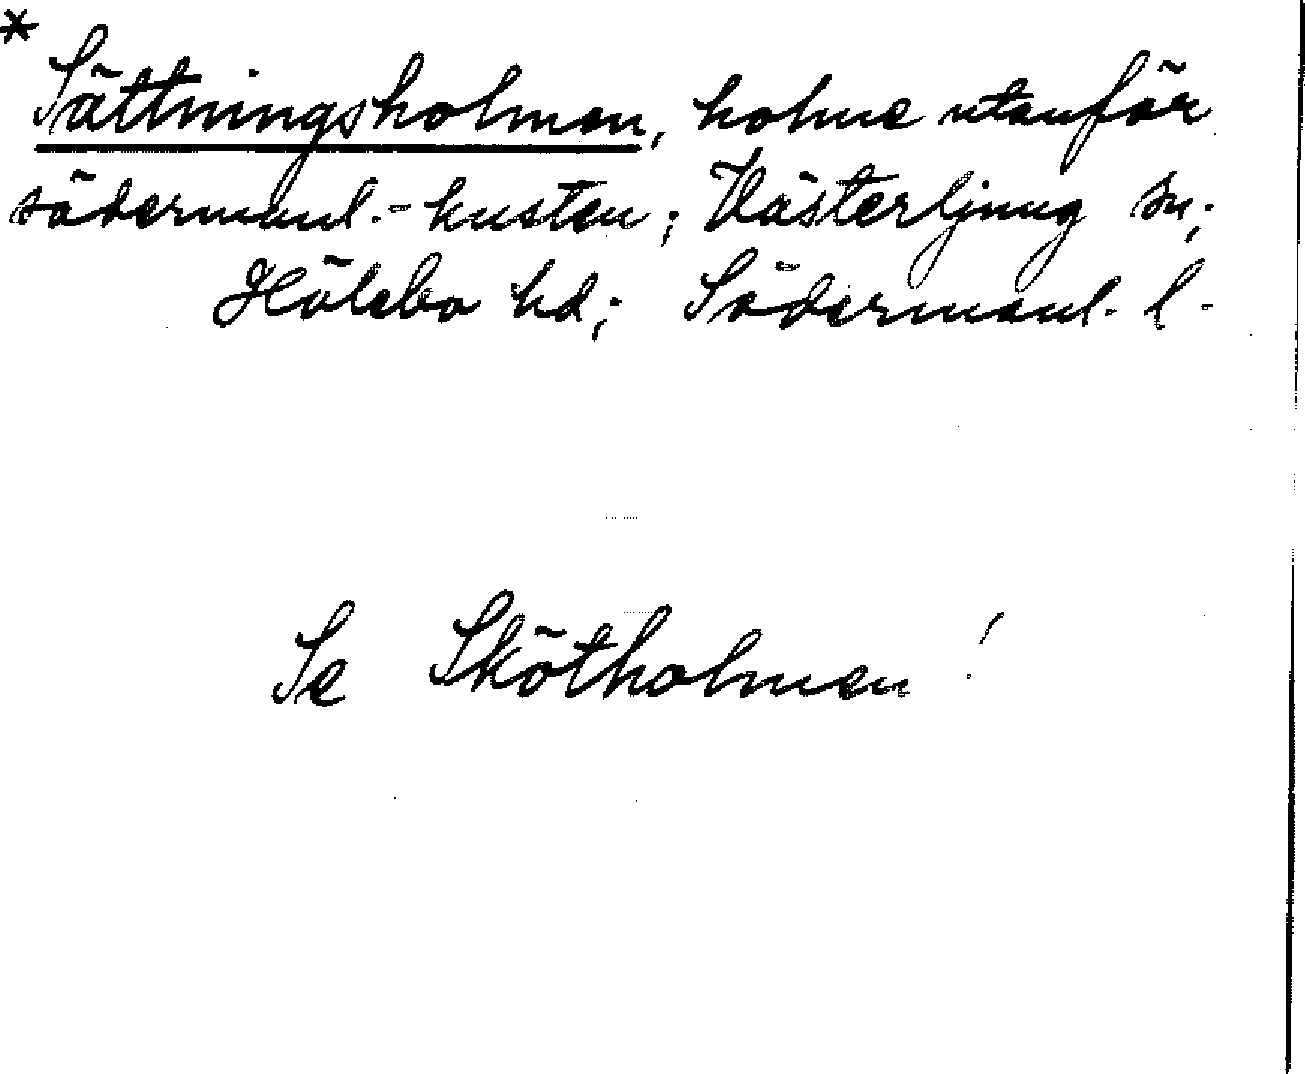 * Sättningsholmen, holme utanför
södermanl.-kusten; Västerljung sn;
Hölebo hd; Södermanl. l.
Se Skötholmen!